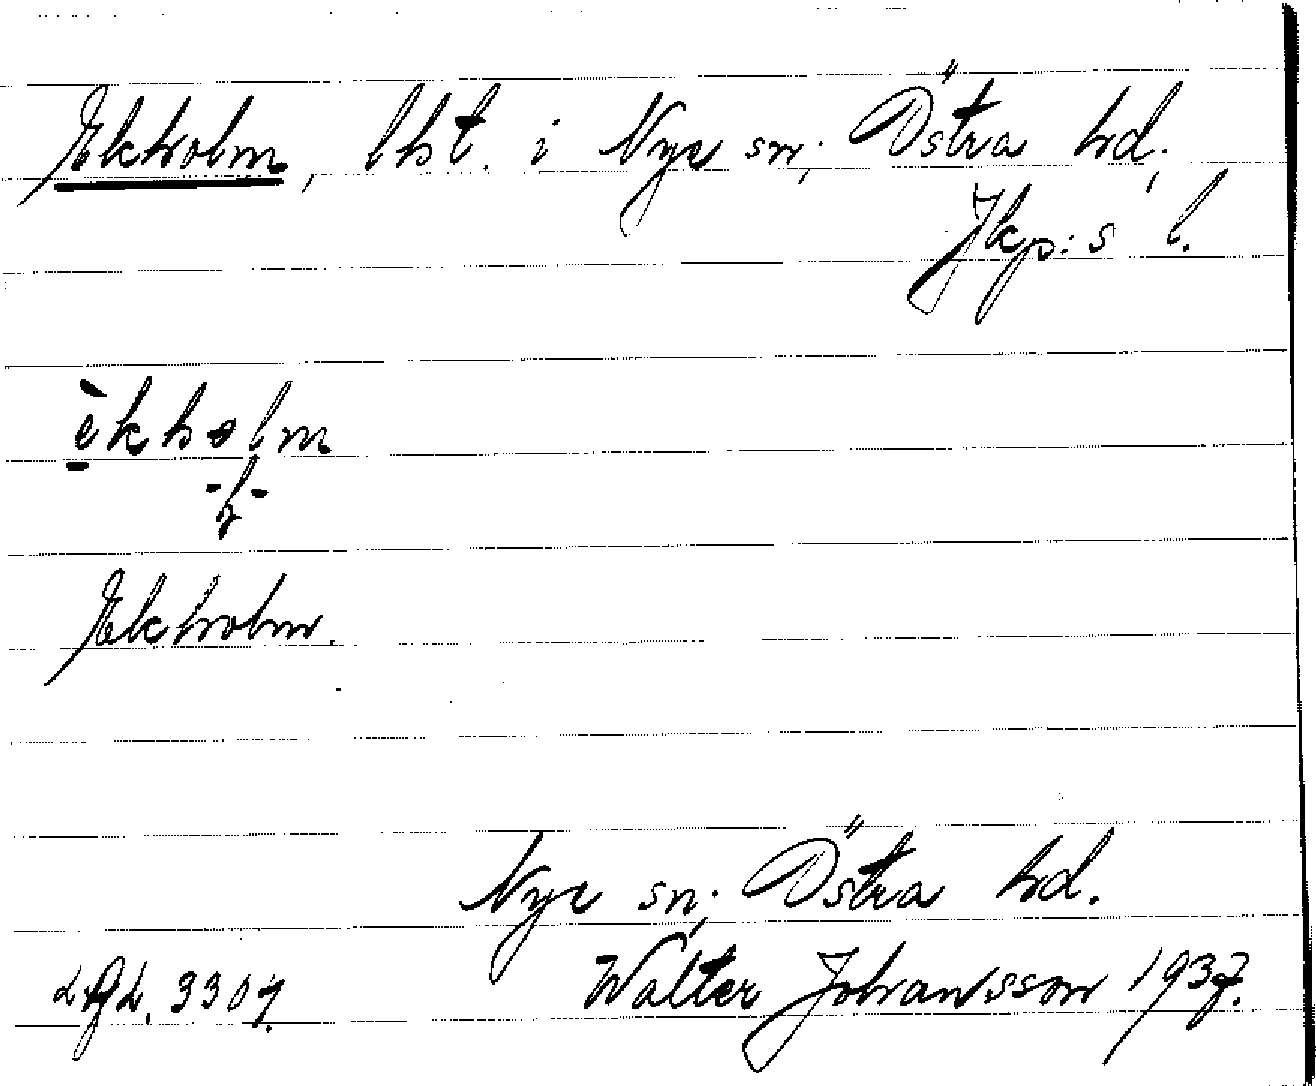 Ekholm, lht. i Nye sn., Östra hd.,
Jkp:s l.
èkholm
-h-
Ekholm.
Nye sn., Östra hd.
3307. Walter Johansson 1937.